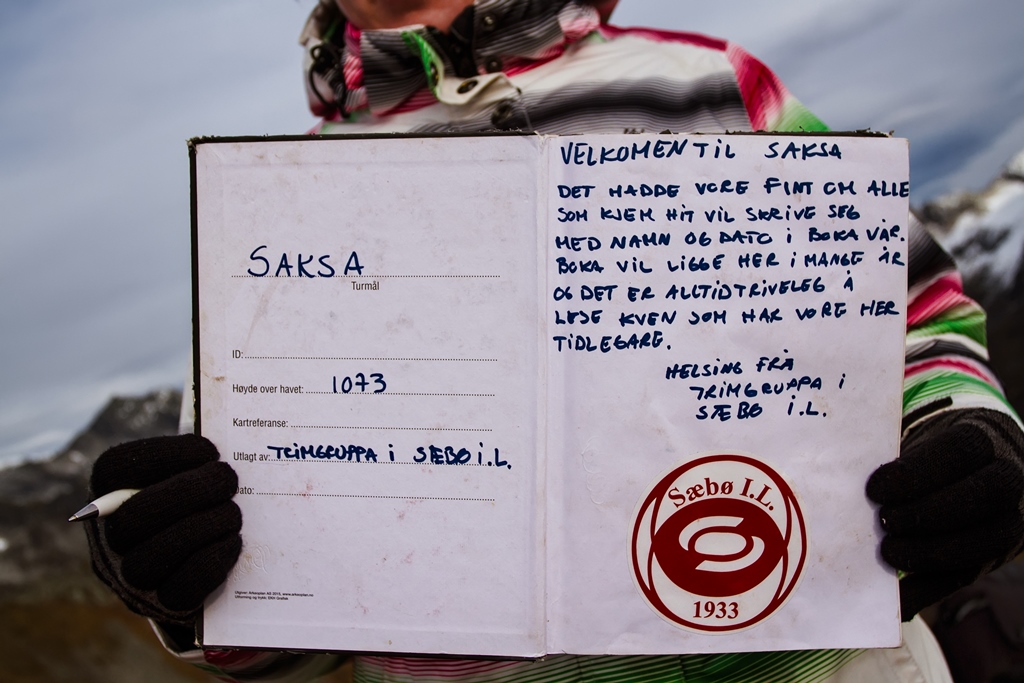 SAKSA
Turmål
ID:
Høyde over havet: 1073
Kartreferanse:
Utlagt av: TRIMGRUPPA i SÆBØ i.L.
Dato:
Utgiver: Arkeoplan AS 2013, www.arkeoplan.no
VELKOMEN TIL SAKSA
DET HADDE VORE FINT OM ALLE
SOM KJEM HIT VIL SKRIVE SEG
MED NAMN OG DATO i BOKA VÅR.
BOKA VIL LIGGE HER i MANGE ÅR
OG DET ER ALLTID TRIVELEG Å
LESE KVEN SOM HAR VORE HER
TIDLEGARE.
HELSING FRÅ
TRIMGRUPPA i
SÆBØ i.L.
Sæbø I.L.
1933